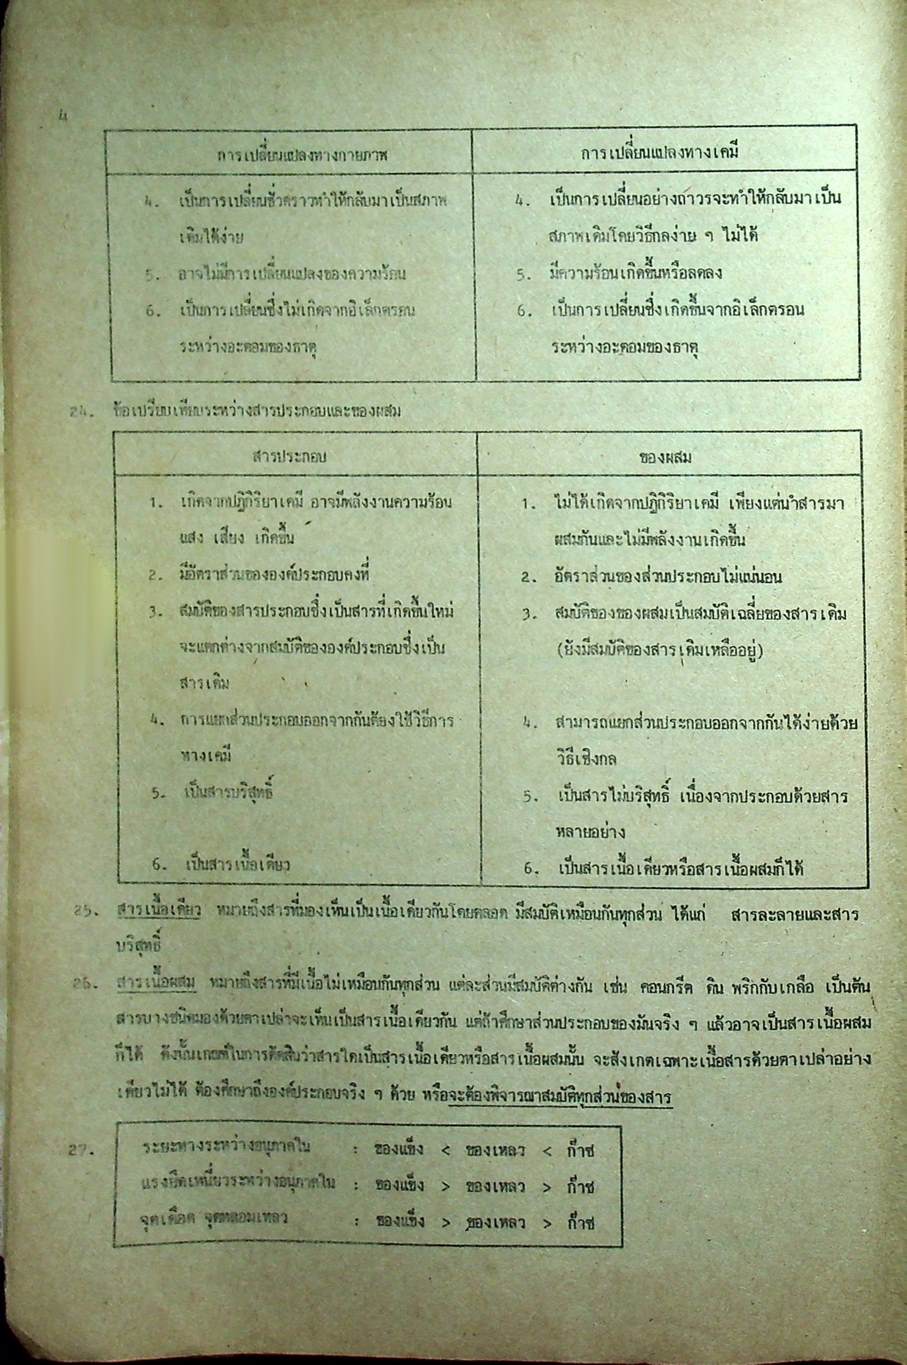 4
การเปลี่ยนแปลงทางกายภาพ
4. เป็นการเปลี่ยนชั่วคราวทำให้กลับมาเป็นสภาพ
เดิมได้ง่าย
5. อาจไม่มีการเปลี่ยนแปลงของความร้อน
6. เป็นการเปลี่ยนซึ่งไม่เกิดจากอิเล็กตรอน
ระหว่างอะตอมของธาตุ
การเปลี่ยนแปลงทางเคมี
4. เป็นการเปลี่ยนอย่างถาวรจะทำให้กลับมาเป็น
สภาพเดิมโดยวิธีกลง่าย ๆ ไม่ได้
5. มีความร้อนเกิดขึ้นหรือลดลง
6. เป็นการเปลี่ยนซึ่งเกิดขึ้นจากอิเล็กตรอน
ระหว่างอะตอมของธาตุ
24. ข้อเปรียบเทียบระหว่างสารประกอบและของผสม
สารประกอบ
1. เกิดจากปฏิกิริยาเคมี อาจมีพลังงานความร้อน
แสง เสียง เกิดขึ้น
2. มีอัตราส่วนขององค์ประกอบคงที่
3. สมบัติของสารประกอบซึ่งเป็นสารที่เกิดขึ้นใหม่
จะแตกต่างจากสมบัติขององค์ประกอบซึ่งเป็น
สารเดิม
4. การแยกส่วนประกอบออกจากกันต้องใช้วิธีการ
ทางเคมี
5. เป็นสารบริสุทธิ์
6. เป็นสารเนื้อเดียว
ของผสม
1. ไม่ได้เกิดจากปฏิกิริยาเคมี เพียงแต่นำสารมา
ผสมกันและไม่มีพลังงานเกิดขึ้น
2. อัตราส่วนของส่วนประกอบไม่แน่นอน
3. สมบัติของของผสมเป็นสมบัติเฉลี่ยของสารเดิม
(ยังมีสมบัติของสารเดิมเหลืออยู่)
4. สามารถแยกส่วนประกอบออกจากกันได้ง่ายด้วย
วิธีเชิงกล
5. เป็นสารไม่บริสุทธิ์ เนื่องจากประกอบด้วยสาร
หลายอย่าง
6. เป็นสารเนื้อเดียวหรือสารเนื้อผสมก็ได้
25. สารเนื้อเดียว หมายถึงสารที่มองเห็นเป็นเนื้อเดียวกันโดยตลอด มีสมบัติเหมือนกันทุกส่วน ได้แก่ สารละลายและสาร
บริสุทธิ์
26. สารเนื้อผสม หมายถึงสารที่มีเนื้อไม่เหมือนกันทุกส่วน แต่ละส่วนมีสมบัติต่างกัน เช่น คอนกรีต ดิน พริกกับเกลือ เป็นต้น
สารบางชนิดมองด้วยตาเปล่าจะเห็นเป็นสารเนื้อเดียวกัน แต่ถ้าศึกษาส่วนประกอบของมันจริง ๆ แล้วอาจเป็นสารเนื้อผสม
ก็ได้ ดังนั้นเกณฑ์ในการตัดสินว่าสารใดเป็นสารเนื้อเดียวหรือสารเนื้อผสมนั้น จะสังเกตเฉพาะเนื้อสารด้วยตาเปล่าอย่าง
เดียวไม่ได้ ต้องศึกษาถึงองค์ประกอบจริง ๆ ด้วย หรือจะต้องพิจารณาสมบัติทุกส่วนของสาร
27. ระยะทางระหว่างอนุภาคใน : ของแข็ง < ของเหลว < ก๊าซ
แรงยึดเหนี่ยวระหว่างอนุภาคใน : ของแข็ง > ของเหลว > ก๊าซ
จุดเดือด จุดหลอมเหลว : ของแข็ง > ของเหลว > ก๊าซ